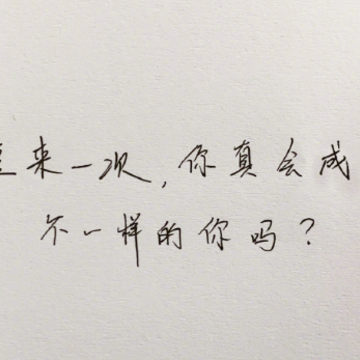 重来一次,你真会成
不一样的你吗?